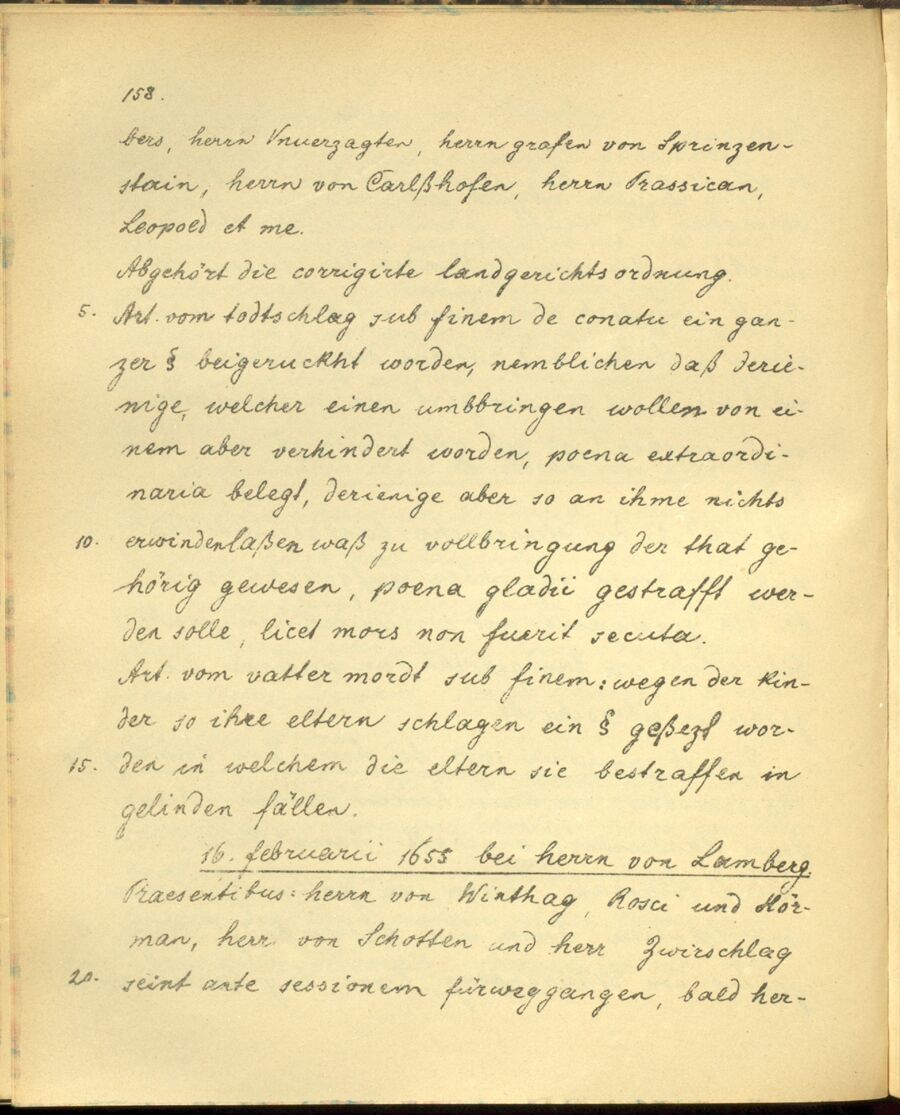 158.
bers, herrn Vnuerzagten, herrn grafen von Sprinzen-
stain, herrn von Carlßhofen, herrn Prassican,
Leopold et me.
Abgehört die corrigirte landgerichtsordnung.
5. Art. vom todtschlag sub finem de conatu ein gan-
zer § beigeruckht worden, nemblichen daß derie-
nige, welcher einen umbbringen wollen von ei-
nem aber verhindert worden, poena extraordi-
naria belegt, derienige aber so an ihme nichts
10. erwinden laßen waß zu vollbringung der that ge-
hörig gewesen, poena gladii gestrafft wer-
den solle, licet mors non fuerit secuta.
Art. vom vatter mordt sub finem: wegen der kin-
der so ihre eltern schlagen ein § geßezt wor-
15. den in welchem die eltern sie bestraffen in
gelinden fällen.
16. februarii 1655 bei herrn von Lamberg.
Praesentibus: herrn von Winthag, Rosci und Hör-
man, herr von Schotten und herr Zwirschlag
20. seint ante sessionem fürweggangen, bald her-